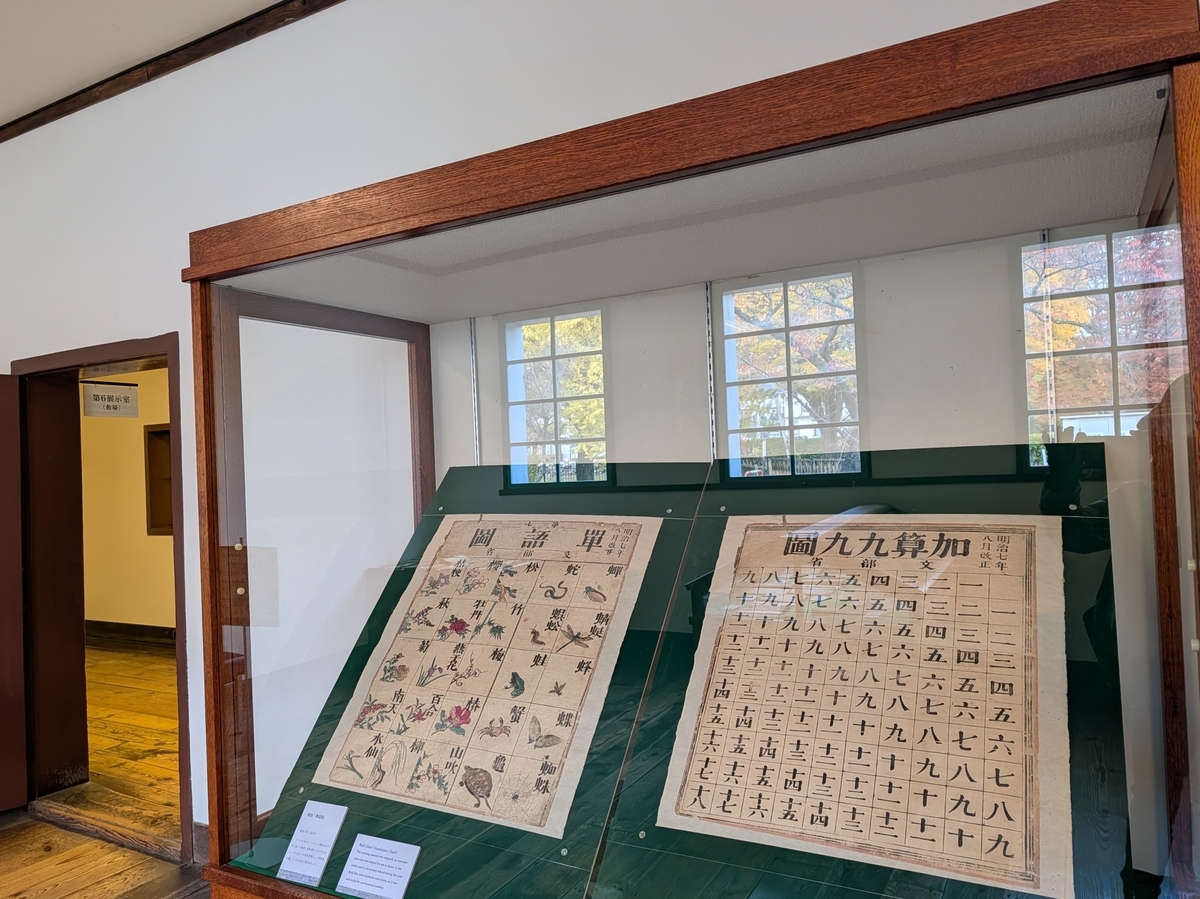 第6展示室
(教場)
明治七年
八月改正
單語圖
第七
文部省
蟬
蜻蜓
蜂
蝶
蜘蛛
蛇
蜈蚣
蛙
蟹
龜
松
竹
梅
椿
山吹
櫻
牡丹
燕子花
百合
柳
菊
南天
水仙
明治七年
八月改正
加算九九圖
文部省
一 二 三 四 五 六 七 八 九
一 二 三 四 五 六 七 八 九 十
二 三 四 五 六 七 八 九 十 十一
三 四 五 六 七 八 九 十 十一 十二
四 五 六 七 八 九 十 十一 十二 十三
五 六 七 八 九 十 十一 十二 十三 十四
六 七 八 九 十 十一 十二 十三 十四 十五
七 八 九 十 十一 十二 十三 十四 十五 十六
八 九 十 十一 十二 十三 十四 十五 十六 十七
九 十 十一 十二 十三 十四 十五 十六 十七 十八